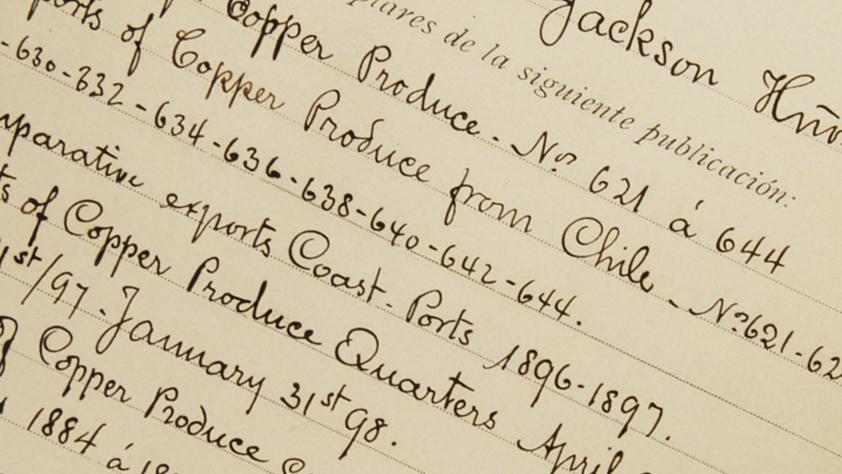 Jackson Hno
plares de la siguiente publicación:
Copper Produce. Nos 621 á 644
ports of Copper Produce from Chile - No. 621-62
-630-332-634-636-638-640-642-644.
parative exports Coast. Ports 1896-1897.
ts of Copper Produce Quarters April
1st/97. January 31st 98.
Copper Produce
1884 á 18